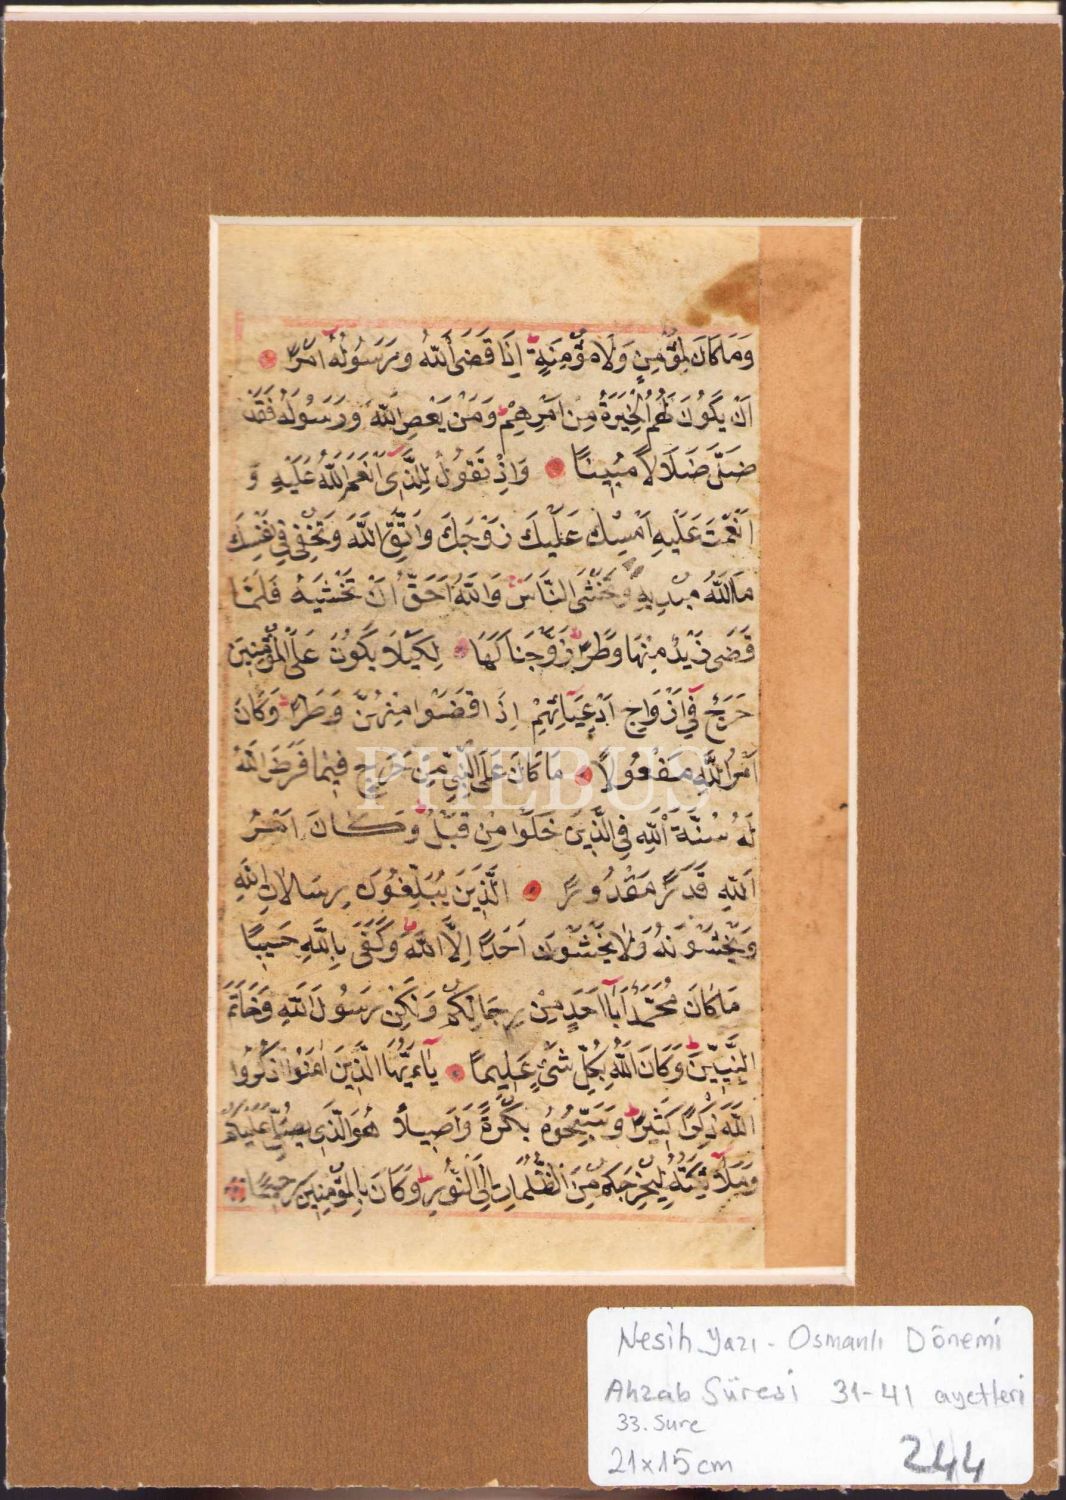 وَمَا كَانَ لِمُؤْمِنٍ وَلَا مُؤْمِنَةٍ اِذَا قَضَى اللّٰهُ وَرَسُولُهُ اَمْرًا
اَنْ يَكُونَ لَهُمُ الْخِيَرَةُ مِنْ اَمْرِهِمْ وَمَنْ يَعْصِ اللّٰهَ وَرَسُولَهُ فَقَدْ
ضَلَّ ضَلَالًا مُبِينًا وَاِذْ تَقُولُ لِلَّذِي اَنْعَمَ اللّٰهُ عَلَيْهِ وَ
اَنْعَمْتَ عَلَيْهِ اَمْسِكْ عَلَيْكَ زَوْجَكَ وَاتَّقِ اللّٰهَ وَتُخْفِي فِي نَفْسِكَ
مَا اللّٰهُ مُبْدِيهِ وَتَخْشَى النَّاسَ وَاللّٰهُ اَحَقُّ اَنْ تَخْشٰيهُ فَلَمَّا
قَضٰى زَيْدٌ مِنْهَا وَطَرًا زَوَّجْنَاكَهَا لِكَيْلَا يَكُونَ عَلَى الْمُؤْمِنِينَ
حَرَجٌ فِي اَزْوَاجِ اَدْعِيَائِهِمْ اِذَا قَضَوْا مِنْهُنَّ وَطَرًا وَكَانَ
اَمْرُ اللّٰهِ مَفْعُولًا مَا كَانَ عَلَى النَّبِيِّ مِنْ حَرَجٍ فِيمَا فَرَضَ اللّٰهُ
لَهُ سُنَّةَ اللّٰهِ فِي الَّذِينَ خَلَوْا مِنْ قَبْلُ وَكَانَ اَمْرُ
اللّٰهِ قَدَرًا مَقْدُورًا الَّذِينَ يُبَلِّغُونَ رِسَالَاتِ اللّٰهِ
وَيَخْشَوْنَهُ وَلَا يَخْشَوْنَ اَحَدًا اِلَّا اللّٰهَ وَكَفٰى بِاللّٰهِ حَسِيبًا
مَا كَانَ مُحَمَّدٌ اَبَا اَحَدٍ مِنْ رِجَالِكُمْ وَلٰكِنْ رَسُولَ اللّٰهِ وَخَاتَمَ
النَّبِيِّينَ وَكَانَ اللّٰهُ بِكُلِّ شَيْءٍ عَلِيمًا يَاءَيُّهَا الَّذِينَ اٰمَنُوا اذْكُرُوا
اللّٰهَ ذِكْرًا كَثِيرًا وَسَبِّحُوهُ بُكْرَةً وَاَصِيلًا هُوَ الَّذِي يُصَلِّي عَلَيْكُمْ
وَمَلَائِكَتُهُ لِيُخْرِجَكُمْ مِنَ الظُّلُمَاتِ اِلَى النُّورِ وَكَانَ بِالْمُؤْمِنِينَ رَحِيمًا
PHEBUS
Nesih Yazı - Osmanlı Dönemi
Ahzab Sûresi 31-41 ayetleri
33. Sure
21x15cm 244